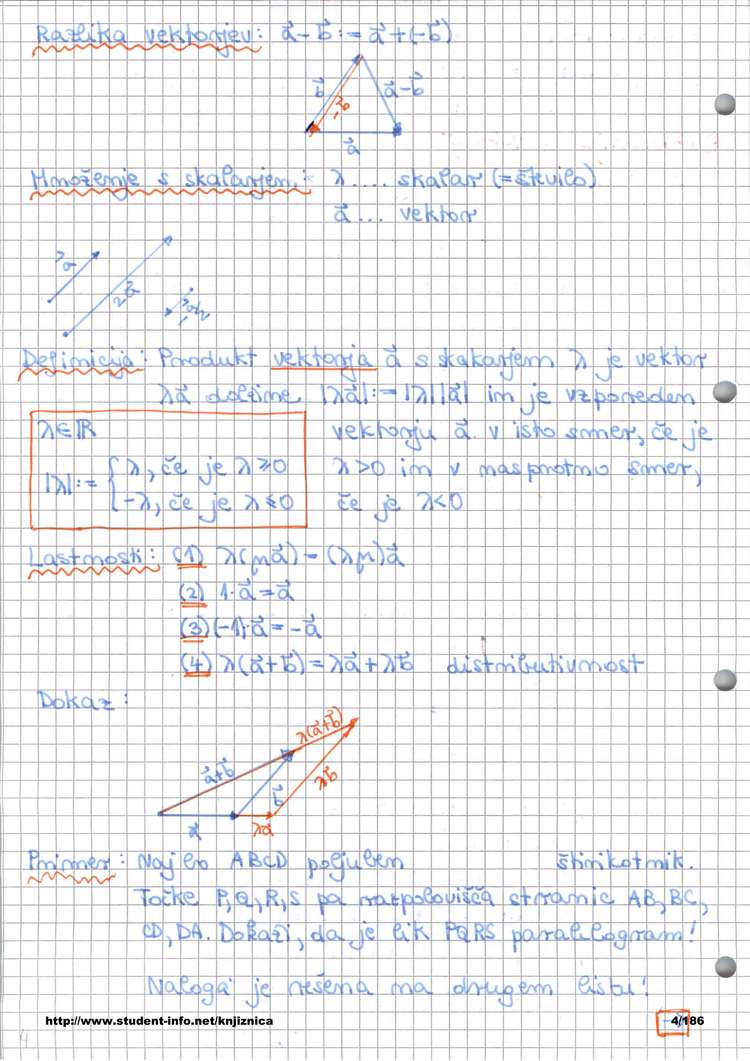 Razlika vektorjev: a⃗ - b⃗ := a⃗ + (-b⃗)
b⃗
-b⃗
a⃗ - b⃗
a⃗
Množenje s skalarjem: λ .... skalar (= število)
a⃗ ... vektor
a⃗
2a⃗
Definicija: Produkt vektorja a⃗ s skakarjem λ je vektor
λa⃗ dolžine |λa⃗| := |λ||a⃗| in je vzporeden
vektorju a⃗ v isto smer, če je
λ>0 in v nasprotno smer,
če je λ<0
λ∈ℝ
|λ| := { λ, če je λ≥0
-λ, če je λ≤0
Lastnosti: (1) λ(μa⃗) = (λμ)a⃗
(2) 1·a⃗ = a⃗
(3) (-1)·a⃗ = -a⃗
(4) λ(a⃗+b⃗) = λa⃗ + λb⃗ distributivnost
Dokaz:
λ(a⃗+b⃗)
a⃗+b⃗
b⃗
λb⃗
a⃗
λa⃗
Primer: Naj bo ABCD poljuben štirikotnik.
Točke P,Q,R,S pa razpolovišča stranic AB, BC,
CD, DA. Dokaži, da je lik PQRS paralelogram!
Naloga je rešena na drugem listu!
http://www.student-info.net/knjiznica
4/186
4